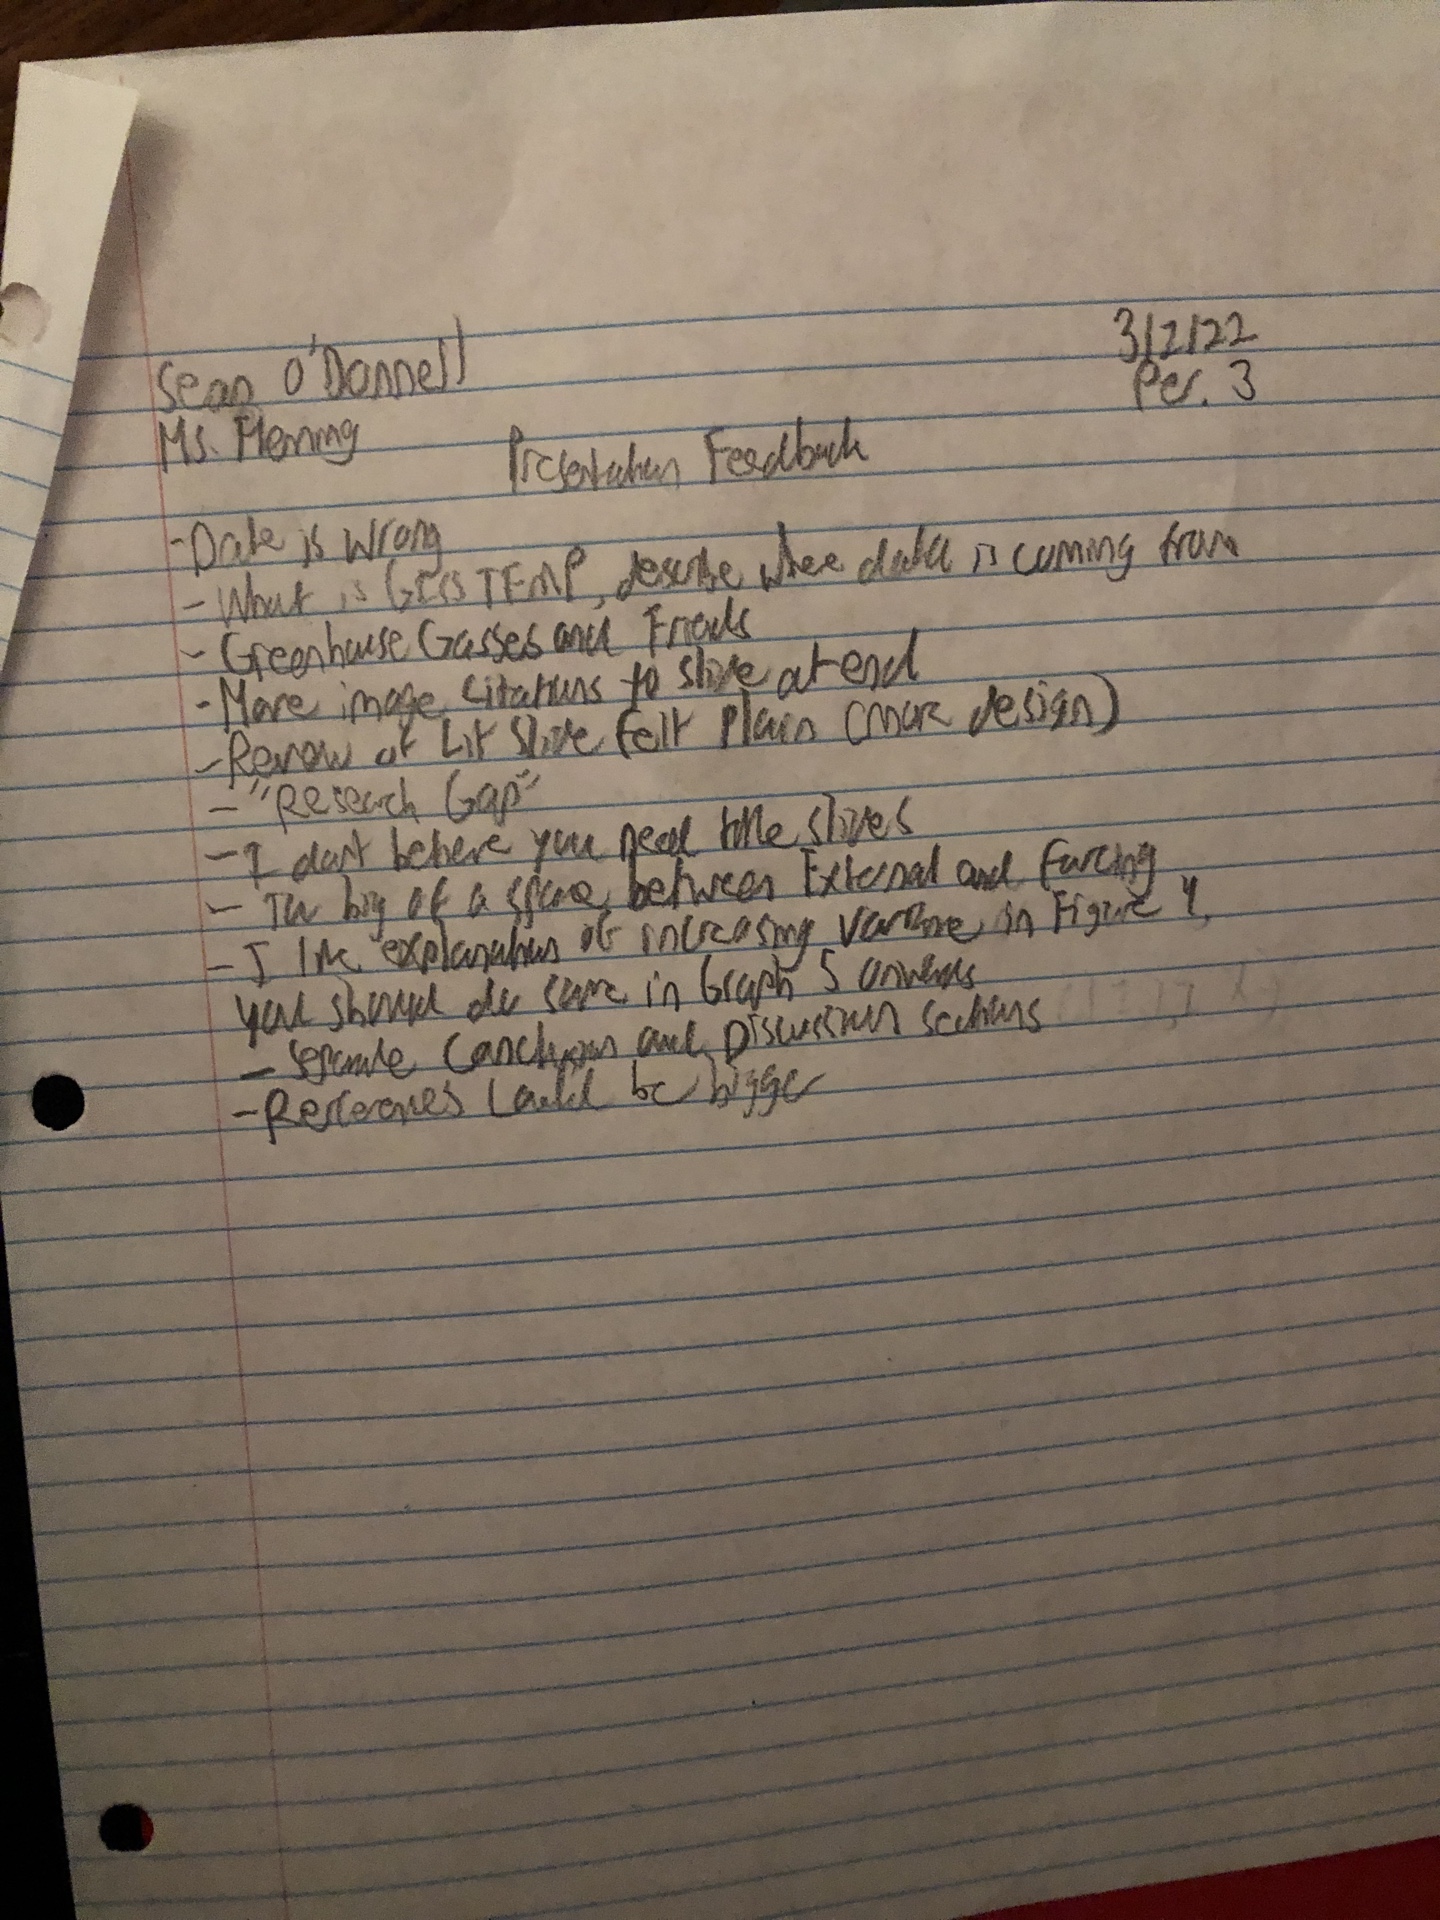 Sean O'Donnell
3/2/22
Per. 3
Ms. Fleming
Presentation Feedback
- Date is wrong
- What is GISS TEMP, describe where data is coming from
- Greenhouse Gasses and
- More image citations to slide at end
- Review of Lit slide felt plain (more design)
- "Research Gap"
- I don't believe you need title slides
- Too big of a space between External and Forcing
- I like explanation of increasing variance in Figure 4,
you should do same in Graph 5 onwards
- separate Conclusion and Discussion sections
- References could be bigger